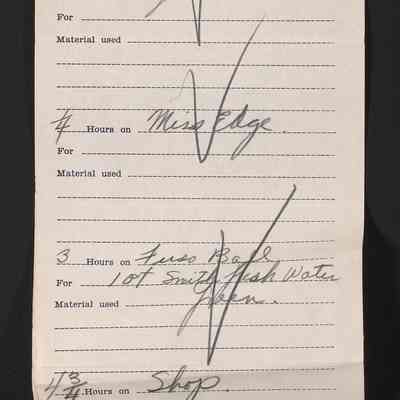 For
Material used
4 Hours on Miss Edge.
For
Material used
3 Hours on
For Lot Smith Fish Water
Material used
4 3/4 Hours on Shop.